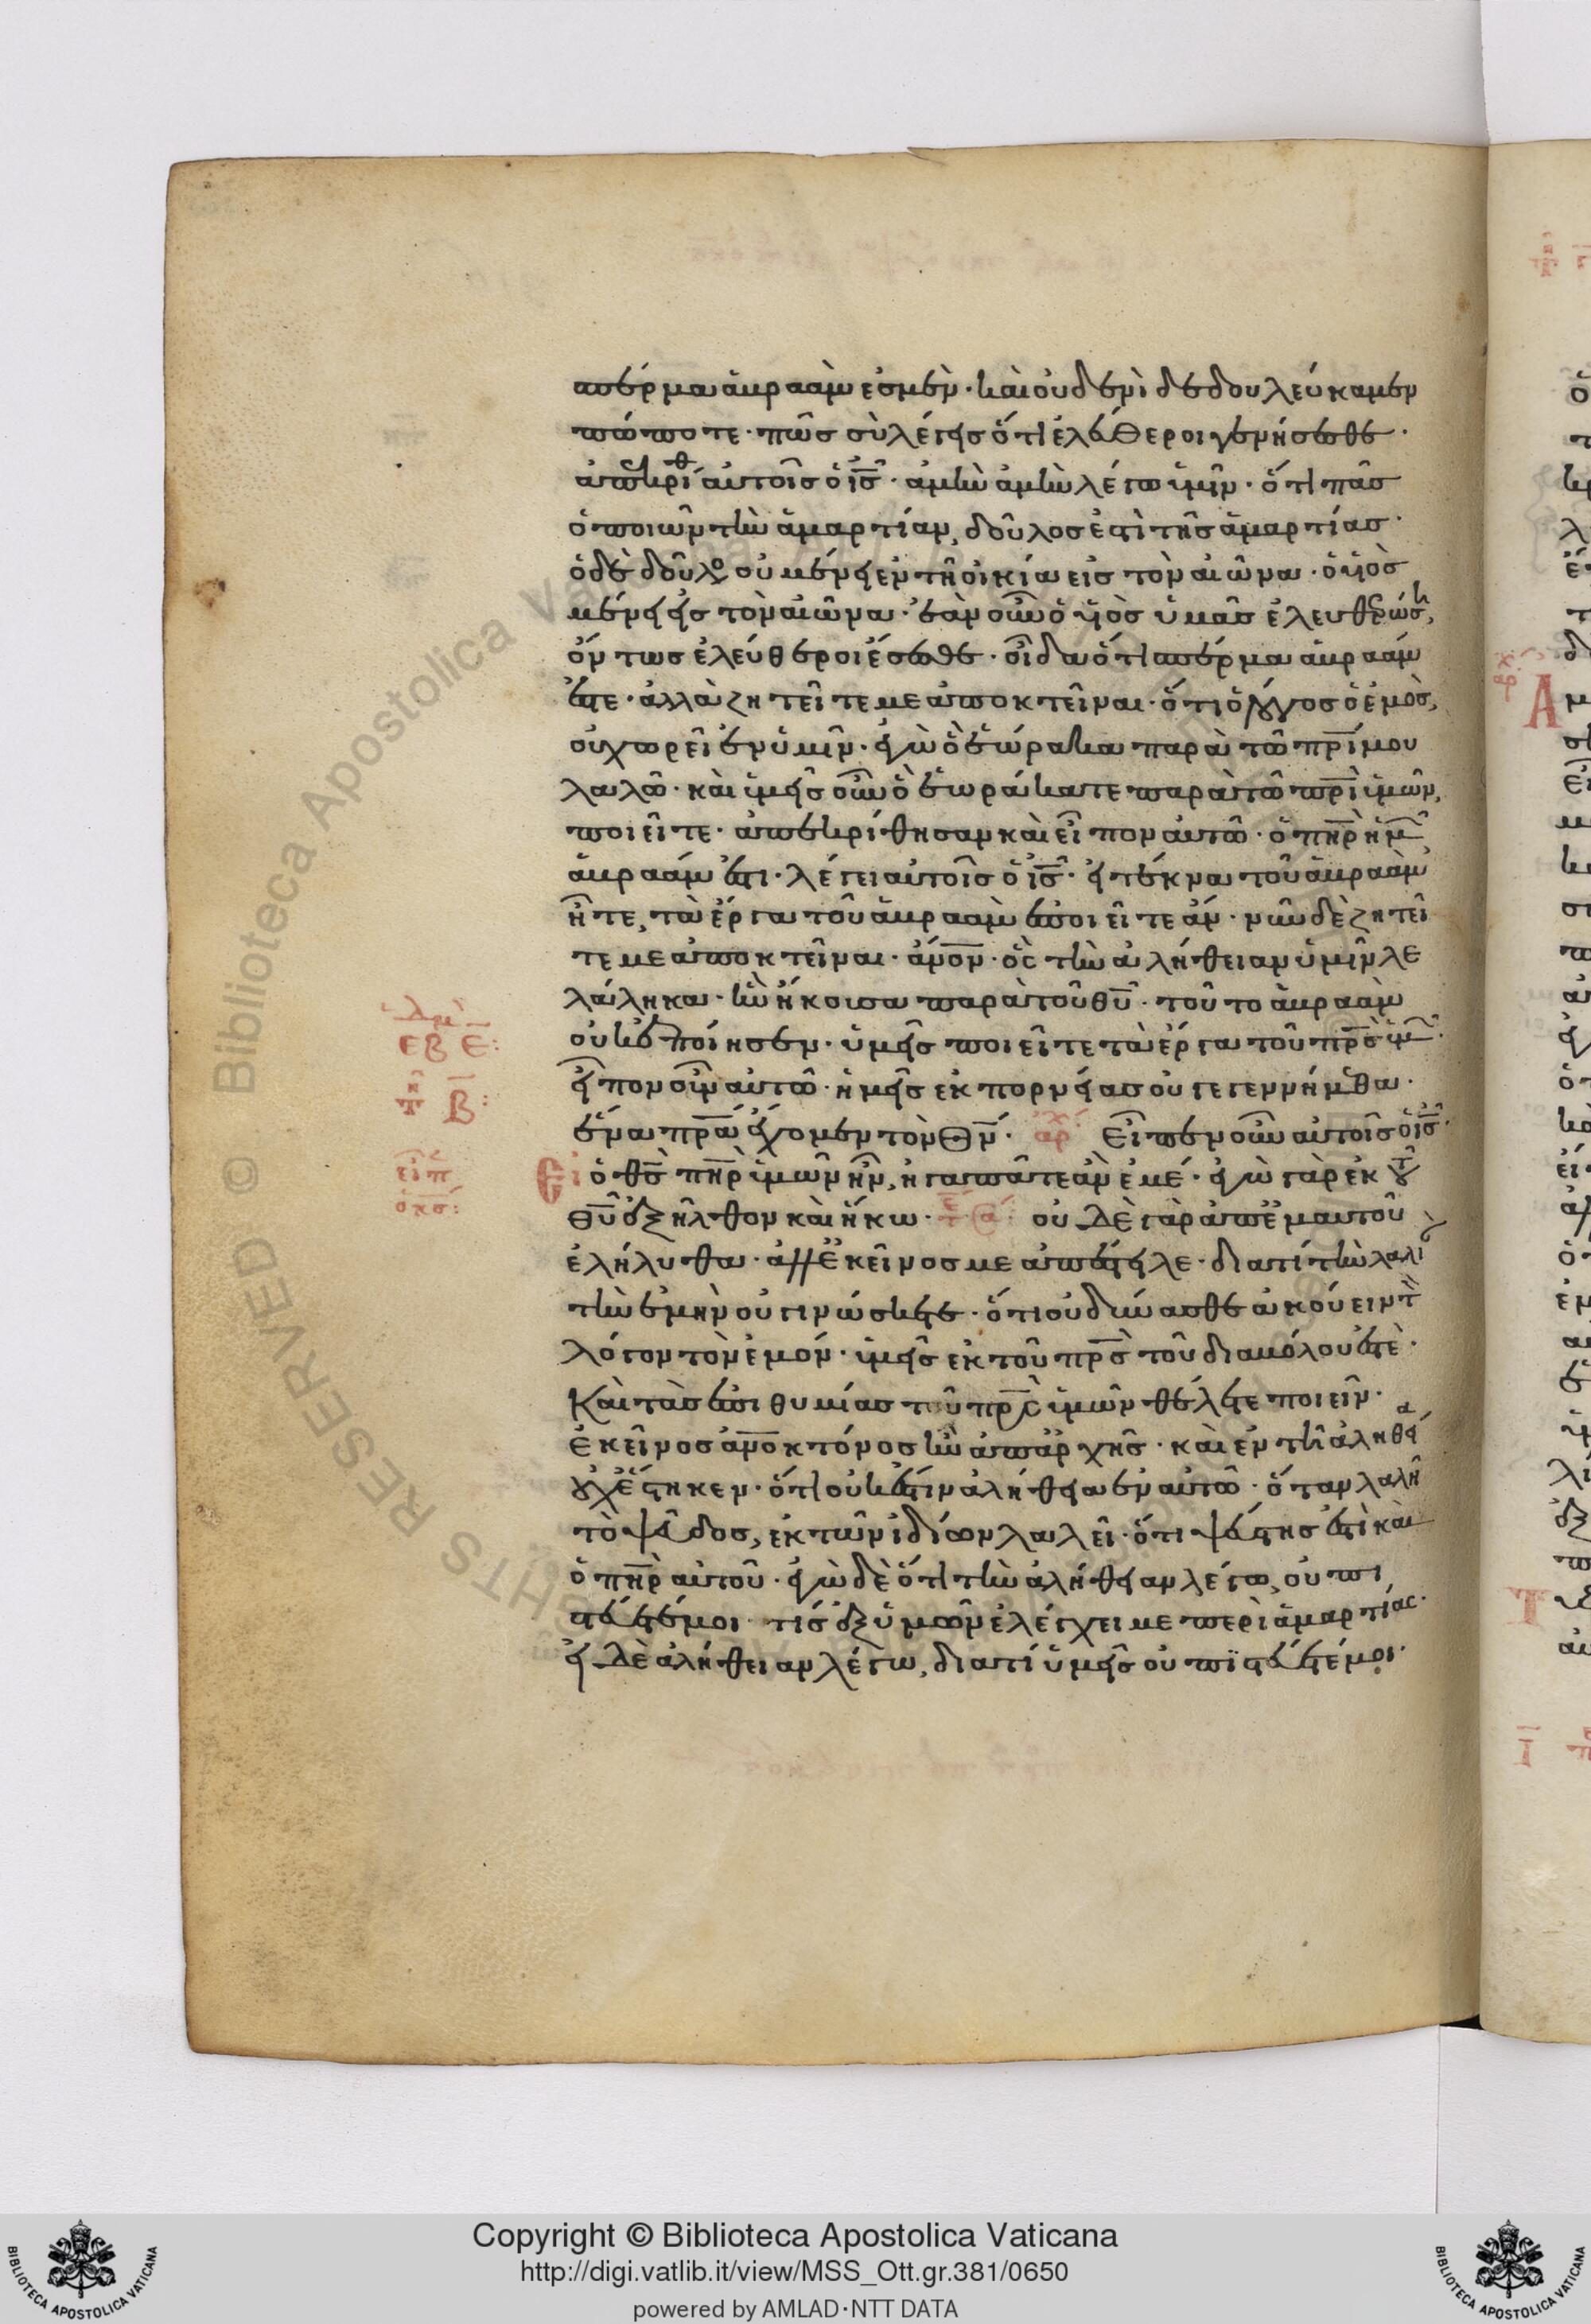 σπέρμα ἀβραάμ ἐσμεν· καὶ οὐδενὶ δεδουλεύκαμεν
πώποτε· πῶς σὺ λέγεις ὅτι ἐλεύθεροι γενήσεσθε·
ἀπεκρίθ αὐτοῖς ὁ ἰς̅· ἀμὴν ἀμὴν λέγω ὑμῖν· ὅτι πᾶς
ὁ ποιῶν τὴν ἁμαρτίαν, δοῦλος ἐστὶ τῆς ἁμαρτίας·
ὁ δὲ δοῦλο οὐ μένει ἐν τῆ οἰκία εἰς τὸν αἰῶνα· ὁ υἱὸς
μένει εἰς τὸν αἰῶνα· ἐὰν οὖν ὁ υἱὸς ὑμᾶς ἐλευθερώση,
ὄντως ἐλεύθεροι ἔσεσθε· οἶδα ὅτι σπέρμα ἀβραάμ
ἐστε· ἀλλὰ ζητεῖτε με ἀποκτεῖναι· ὅτι ὁ λόγος ὁ ἐμὸς,
οὐ χωρεῖ ἐν ὑμῖν· ἐγὼ ὃ ἑώρακα παρὰ τῶ πρ̅ί μου
λαλῶ· καὶ ὑμεῖς οὖν ὃ ἑωράκατε παρὰ τῶ πρ̅ὶ ὑμῶν,
ποιεῖτε· ἀπεκρίθησαν καὶ εἶπον αὐτῶ· ὁ πη̅ρ ἡμ̅
ἀβραάμ ἐστι· λέγει αὐτοῖς ὁ ἰς̅· εἰ τέκνα τοῦ ἀβραὰμ
ἦτε, τὰ ἔργα τοῦ ἀβραὰμ ἐποιεῖτε ἄν· νῦν δὲ ζητεῖ
τε με ἀποκτεῖναι· ἄν̅ο̅ν· ὃς τὴν ἀλήθειαν ὑμῖν λε
λάληκα· ἣν ἤκουσα παρὰ τοῦ θυ̅· τοῦτο ἀβραὰμ
οὐκ ἐποίησεν· ὑμεῖς ποιεῖτε τὰ ἔργα τοῦ πρ̅ς ὑμ̅·
εἶπον οὖν αὐτῶ· ἡμεῖς ἐκ πορνείας οὐ γεγεννήμεθα·
ἕνα πρ̅α ἔχομεν τὸν θν̅· ἀρχ Εἶπεν οὖν αὐτοῖς ὁ ἰς̅·
Εἰ ὁ θς̅ πη̅ρ ὑμῶν ἦν, ἠγαπᾶτε ἂν ἐμέ· ἐγὼ γὰρ ἐκ τοῦ
θυ̅ ἐξῆλθον καὶ ἥκω· οὐ δὲ γὰρ ἀπ ἐμαυτοῦ
ἐλήλυθα· ἀλλ ἐκεῖνος με ἀπέστειλε· διατί τὴν λαλι
τὴν ἐμὴν οὐ γινώσκετε· ὅτι οὐ δύνασθε ἀκούειν τ
λόγον τὸν ἐμόν· ὑμεῖς ἐκ τοῦ πρ̅ς τοῦ διαβόλου ἐστὲ·
Καὶ τὰς ἐπιθυμίας τοῦ πρ̅ς ὑμῶν θέλετε ποιεῖν·
ἐκεῖνος ἀν̅ο̅κτόνος ἦν ἀπ ἀρχῆς· καὶ ἐν τῆ ἀληθεία
οὐχ ἕστηκεν· ὅτι οὐκ ἔστιν ἀλήθεια ἐν αὐτῶ· ὅταν λαλῆ
τὸ ψεῦδος, ἐκ τῶν ἰδίων λαλεῖ· ὅτι ψεύστης ἐστὶ καὶ
ὁ πη̅ρ αὐτοῦ· ἐγὼ δὲ ὅτι τὴν ἀλήθειαν λέγω, οὐ πι
στεύετέ μοι· τίς ἐξ ὑμῶν ἐλέγχει με περὶ ἁμαρτίας·
εἰ δὲ ἀλήθειαν λέγω, διατί ὑμεῖς οὐ πιστεύετέ μοι·
εβ ε̅:
β̅:
εἶπ
ὁ κς:
Biblioteca Apostolica Vaticana
© RESERVED
Copyright © Biblioteca Apostolica Vaticana
http://digi.vatlib.it/view/MSS_Ott.gr.381/0650
powered by AMLAD·NTT DATA
BIBLIOTECA APOSTOLICA VATICANA
BIBLIOTECA APOSTOLICA VATICANA